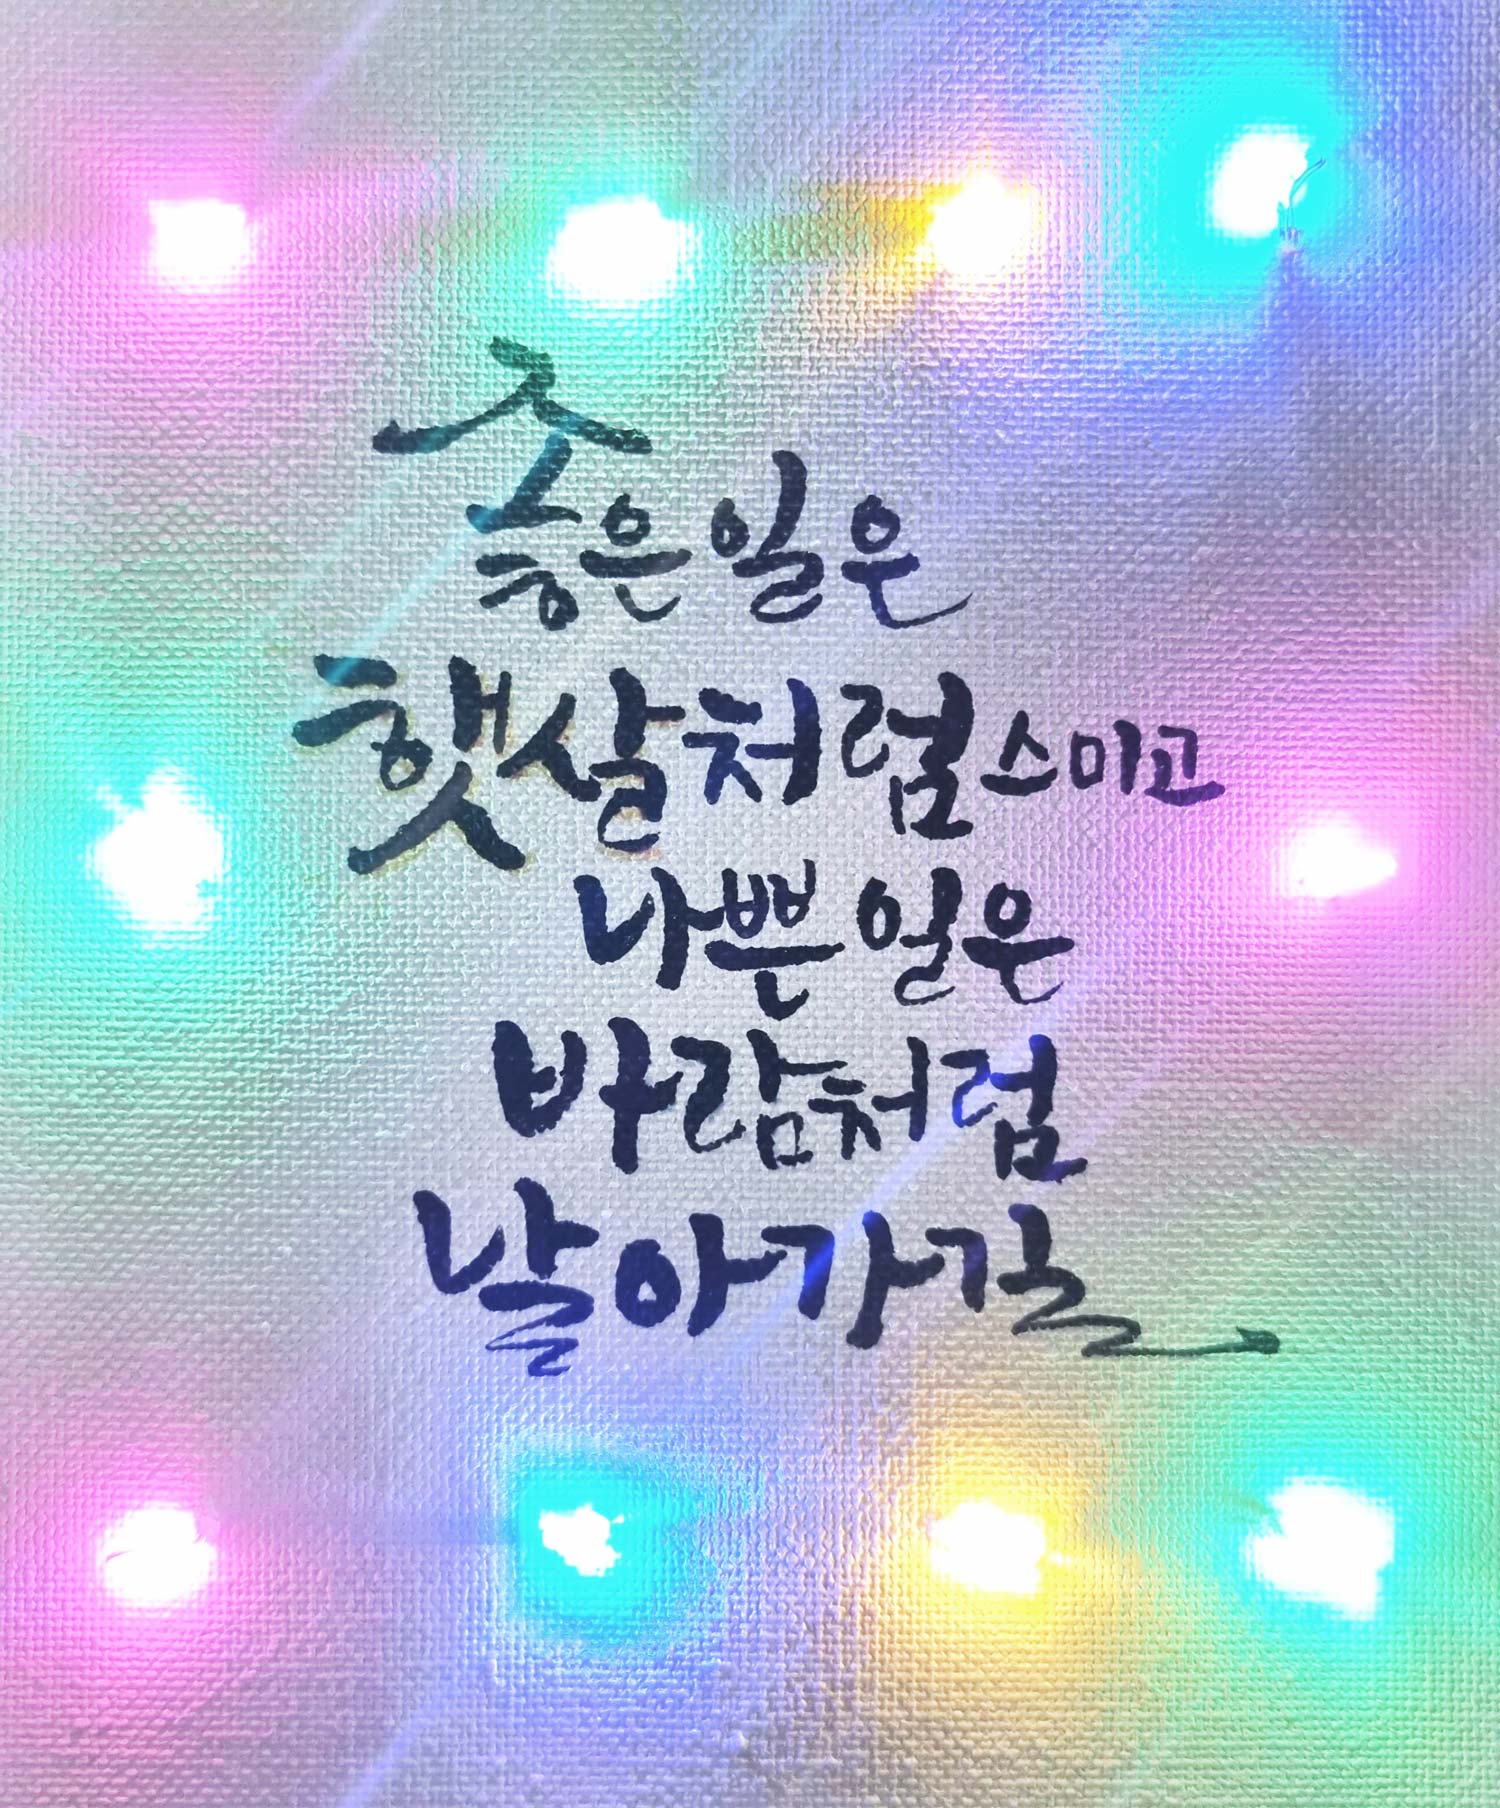 좋은 일은
햇살처럼 스미고
나쁜 일은
바람처럼
날아가길